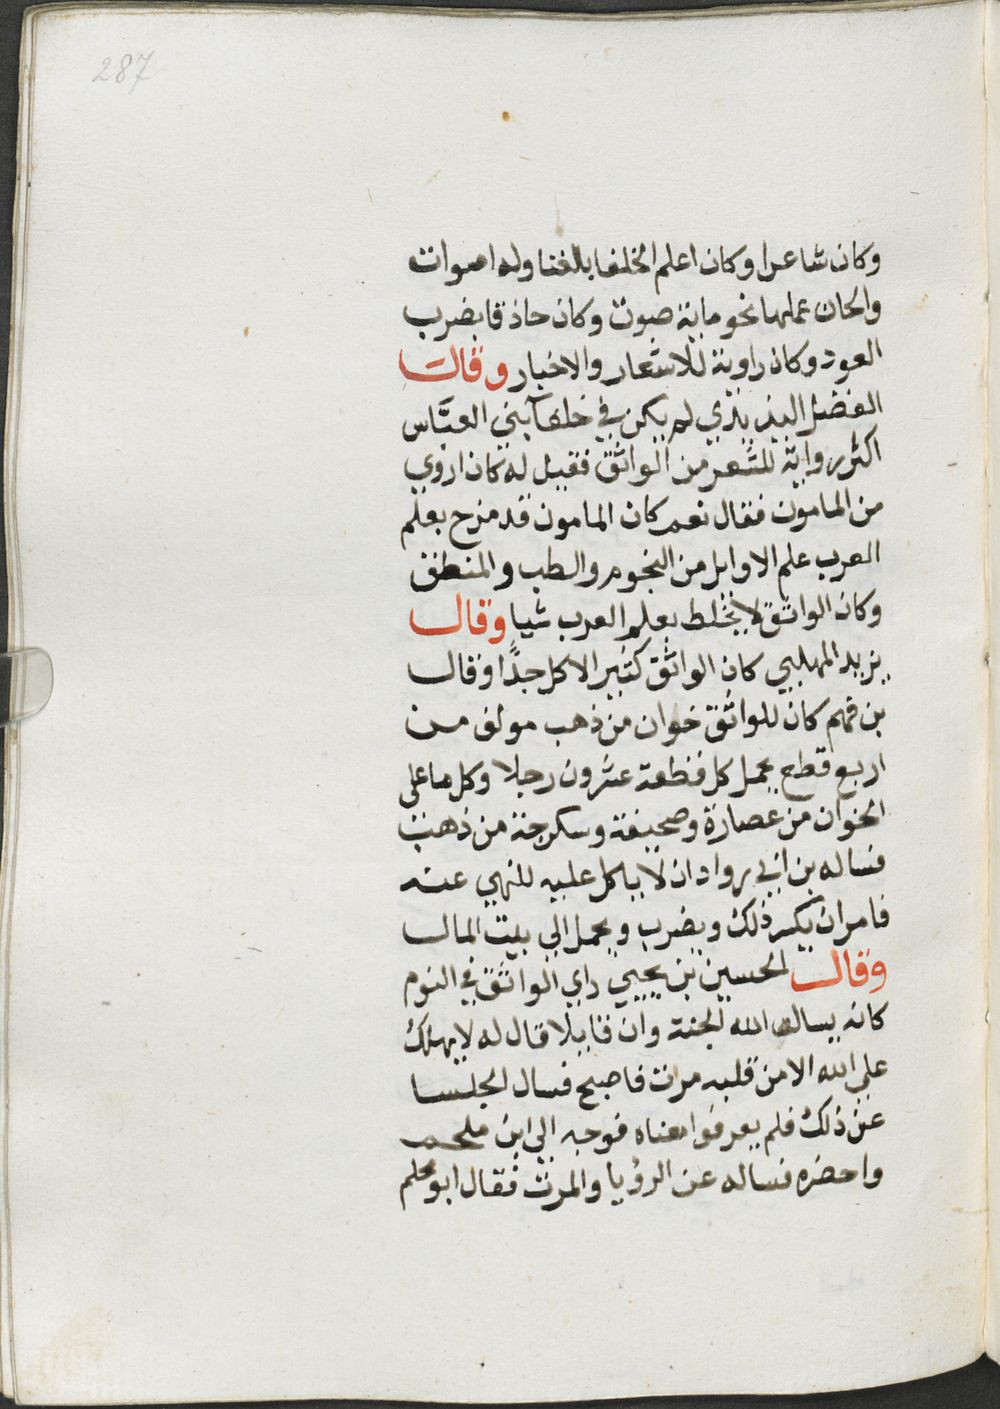 287
وكان شاعرا وكان اعلم الخلفا بالغنا وله اصوات
والحان عملها نحو ماية صوت وكان حاذقا بضرب
العود وكان راوية للاشعار والاخبار وقال
الفضل اليزيدي لم يكن في خلفآ بني العبَّاس
اكثر رواية للشعر من الواثق فقيل له كان اروي
من المامون فقال نعم كان المامون قد مزح بعلم
العرب علم الاوايل من النجوم والطب والمنطق
وكان الواثق لا يخلط بعلم العرب شيا وقال
يزيد المهلبي كان الواثق كثير الاكل جدًّا وقال
بن فهم كان للواثق خوان من ذهب مولف من
اربع قطع يحمل كل قطعة عشرون رجلا وكل ما على
الخوان من عصارة وصحيفة وسكرجة من ذهب
فساله بن ابي رواد ان لا ياكل عليه للنهي عنه
فامر ان يكسر ذلك ويضرب ويحمل الي بيت المال
وقال الحسين بن يحيي راي الواثق في النوم
كانه يسال الله الجنة وان قايلا قال له لا يهلك
علي الله الا من قلبه مرت فاصبح فسال الجلسا
عن ذلك فلم يعرفوا معناه فوجه الي ابن ملحم
واحضره فساله عن الرؤيا والمرت فقال ابو محلم